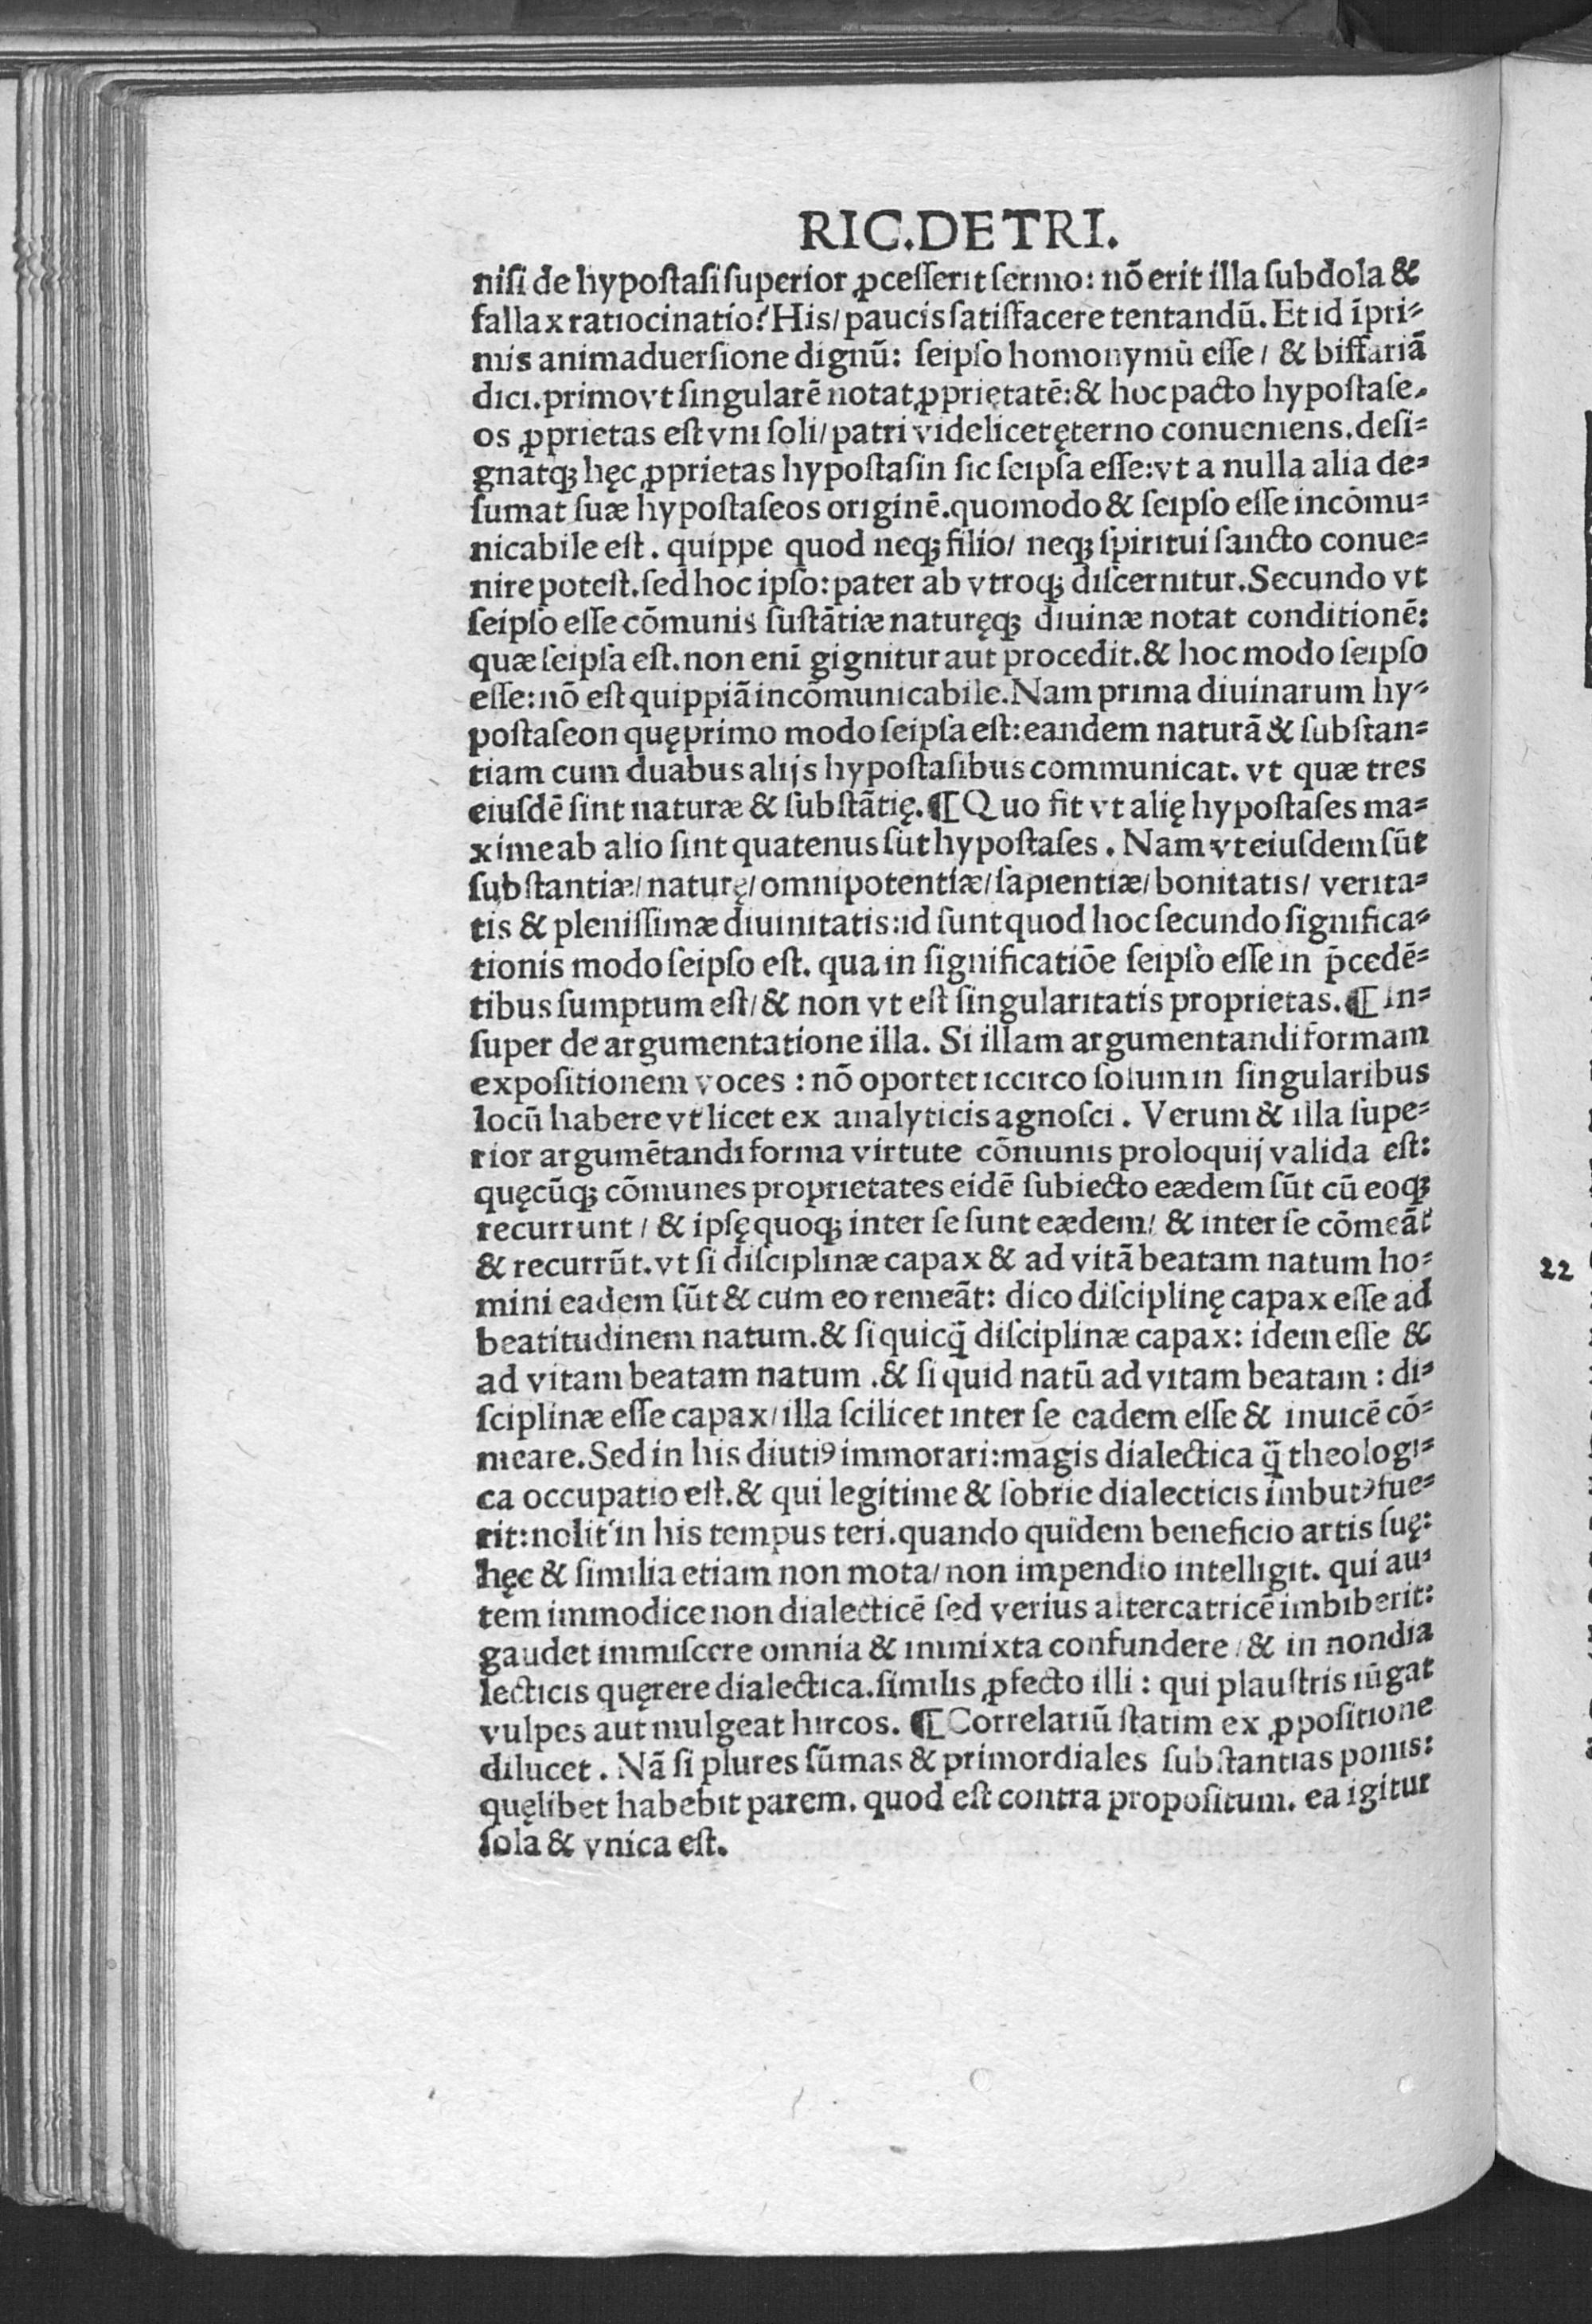 RIC.DE TRI.
niſi de hypoſtaſi ſuperior ꝓceſſerit ſermo: nõ erit illa ſubdola &
fallax ratiocinatio? His/ paucis ſatiſfacere tentandũ. Et id ĩpri⸗
mis animaduerſione dignũ: ſeipſo homonymũ eſſe/ & biffariã
dici. primo vt ſingularẽ notat ꝓprietatẽ: & hoc pacto hypoſtaſe⸗
os ꝓprietas eſt vni ſoli/ patri videlicet ęterno conueniens. deſi⸗
gnatqꝫ hęc ꝓprietas hypoſtaſin ſic ſeipſa eſſe: vt a nulla alia de⸗
ſumat ſuæ hypoſtaſeos originẽ. quomodo & ſeipſo eſſe incõmu⸗
nicabile eſt. quippe quod neqꝫ filio/ neqꝫ ſpiritui ſancto conue⸗
nire poteſt. ſed hoc ipſo: pater ab vtroqꝫ diſcernitur. Secundo vt
ſeipſo eſſe cõmunis ſuſtãtiæ naturęqꝫ diuinæ notat conditionẽ:
quæ ſeipſa eſt. non enĩ gignitur aut procedit. & hoc modo ſeipſo
eſſe: nõ eſt quippiã incõmunicabile. Nam prima diuinarum hy⸗
poſtaſeon quę primo modo ſeipſa eſt: eandem naturã & ſubſtan⸗
tiam cum duabus alijs hypoſtaſibus communicat. vt quæ tres
eiuſdẽ ſint naturæ & ſubſtãtię. ¶ Quo fit vt alię hypoſtaſes ma⸗
xime ab alio ſint quatenus ſũt hypoſtaſes. Nam vt eiuſdem ſũt
ſubſtantiæ/ naturę/ omnipotentiæ/ ſapientiæ/ bonitatis/ verita⸗
tis & pleniſſimæ diuinitatis: id ſunt quod hoc ſecundo ſignifica⸗
tionis modo ſeipſo eſt. qua in ſignificatiõe ſeipſo eſſe in p̃cedẽ⸗
tibus ſumptum eſt/ & non vt eſt ſingularitatis proprietas. ¶ In⸗
ſuper de argumentatione illa. Si illam argumentandi formam
expoſitionem voces: nõ oportet iccirco ſolum in ſingularibus
locũ habere vt licet ex analyticis agnoſci. Verum & illa ſupe⸗
rior argumẽtandi forma virtute cõmunis proloquij valida eſt:
quęcũqꝫ cõmunes proprietates eidẽ ſubiecto eædem ſũt cũ eoqꝫ
recurrunt/ & ipſę quoqꝫ inter ſe ſunt eædem/ & inter ſe cõmeãt
& recurrũt. vt ſi diſciplinæ capax & ad vitã beatam natum ho⸗
mini eadem ſũt & cum eo remeãt: dico diſciplinę capax eſſe ad
beatitudinem natum. & ſi quicq̃ diſciplinæ capax: idem eſſe &
ad vitam beatam natum. & ſi quid natũ ad vitam beatam: di⸗
ſciplinæ eſſe capax/ illa ſcilicet inter ſe eadem eſſe & inuicẽ cõ⸗
meare. Sed in his diutiꝰ immorari: magis dialectica q̃ theologi⸗
ca occupatio eſt. & qui legitime & ſobrie dialecticis imbutꝰ fue⸗
rit: nolit in his tempus teri. quando quidem beneficio artis ſuę:
hęc & ſimilia etiam non mota/ non impendio intelligit. qui au⸗
tem immodice non dialecticẽ ſed verius altercatricẽ imbiberit:
gaudet immiſcere omnia & immixta confundere/ & in nondia
lecticis quęrere dialectica. ſimilis ꝓfecto illi: qui plauſtris iũgat
vulpes aut mulgeat hircos. ¶ Correlariũ ſtatim ex ꝓpoſitione
dilucet. Nã ſi plures ſũmas & primordiales ſubſtantias ponis:
quęlibet habebit parem. quod eſt contra propoſitum. ea igitur
ſola & vnica eſt.
22